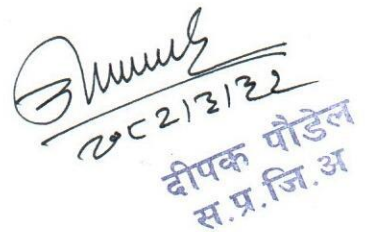 २०८२।३।३२
दीपक पौडेल
स.प्र.जि.अ